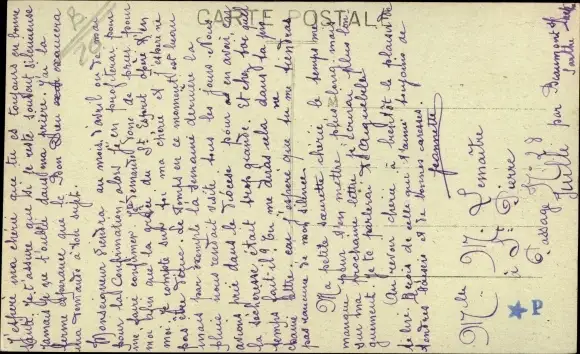 CARTE POSTALE
J'espère ma chère que tu es toujours en bonne
santé. Je t'assure que si je reste souvent silencieuse
jamais je ne t'oublie dans ma prière. J'ai la
ferme espérance que le Bon Dieu exaucera
ma demande à ton sujet.
Monseigneur viendra au mois d'avril ou de mai
pour la Confirmation, alors j'en profiterai pour
me faire confirmer. Je demande donc de prier pour
moi afin que la grâce du St Esprit opère en
moi, je compte sur toi ma chère et j'espère ne
pas être déçue. Le temps en ce moment est beau
mais par exemple la semaine dernière la
pluie nous rendait visite tous les jours. Nous
avions prié dans le diocèse pour en avoir
la sécheresse était trop grande. Et chez toi quel
temps fait-il? Tu me diras cela dans ta pro
chaine lettre, car j'espère que tu ne me tiendras
pas rancune de mon silence.
Ma petite sœurette chérie le temps me
manque pour t'en mettre plus long, mais
sur ma prochaine lettre j'écrirai plus lon
guement. Je te parlerai d'
Au revoir chère à bientôt le plaisir de
te lire. Reçois de celle qui t'aime toujours de
tendres baisers et de bonnes caresses.
Jeannette
Mlle M. Lemaitre
à St Pierre
Passage
par Beaumont s/
Sarthe